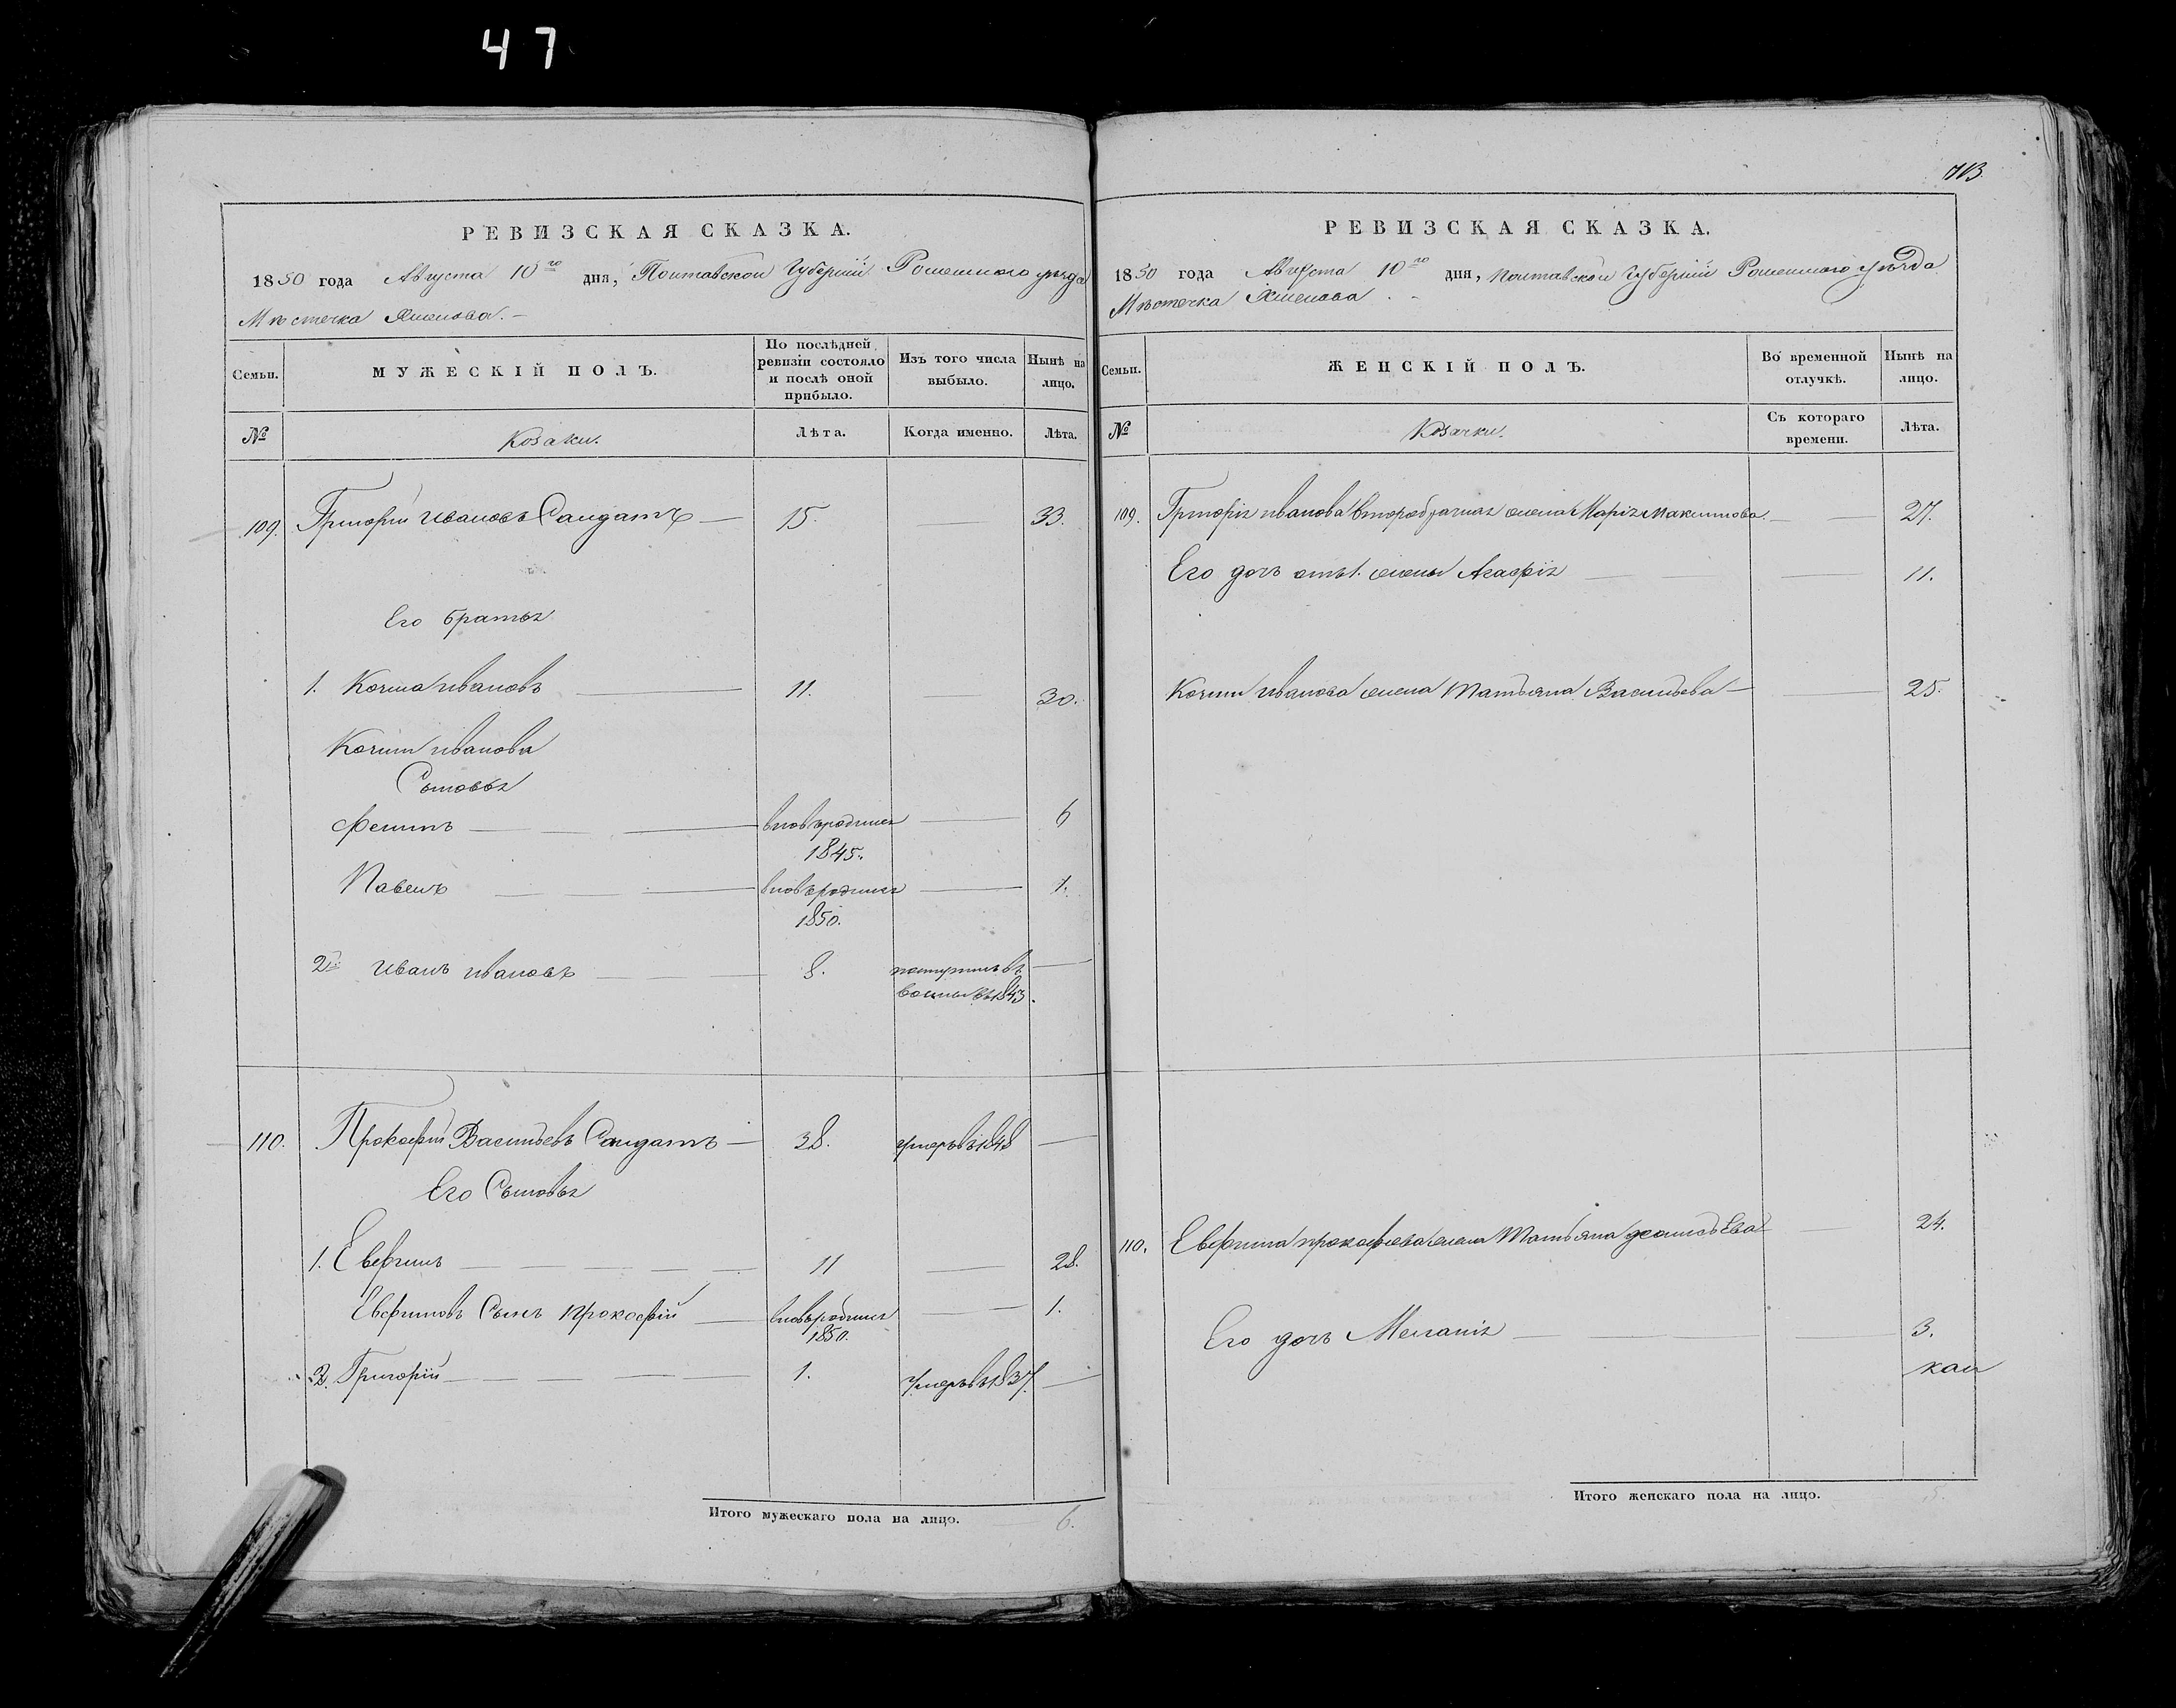 47
РЕВИЗСКАЯ СКАЗКА.
1850 года Августа 10го дня, Полтавской Губерніи Роменского уѣзда
Мѣстечка
Семьи.
МУЖЕСКІЙ ПОЛЪ.
По послѣдней ревизіи состояло и послѣ оной прибыло.
Изъ того числа выбыло.
Нынѣ на лицо.
№
Козаки.
Лѣта.
Когда именно.
Лѣта.
109. Григорій Ивановъ Солдатъ 15. 33.
Его братья
1. Козма Ивановъ 11. 30.
Козмы Иванова
Сыновья
Филипъ вновьродился 6
1845.
Павелъ вновьродился 1.
1850.
2й Иванъ Ивановъ 8. поступилъ въ
въ1843.
110. Прокофій Васильевъ Солдатъ 38. умеръвъ1848
Его Сыновья
1. 11 28.
Сынъ Прокофій вновьродился 1.
1850.
2. Григорій 1. Умеръвъ1837.
Итого мужескаго пола на лицо. 6.
РЕВИЗСКАЯ СКАЗКА.
1850 года Августа 10го дня, Полтавской Губерніи Роменского уѣзда
Мѣстечка
Семьи.
ЖЕНСКІЙ ПОЛЪ.
Во временной отлучкѣ.
Нынѣ на лицо.
№
Козачки.
Съ котораго времени.
Лѣта.
109. Григорія Иванова второбрачная жена Марія Максимова 27.
Его дочь отъ 1. жены Агафія 11.
Козмы Иванова жена Татьяна Васильева 25.
110. Прокофіева жена Татьяна 24.
Его дочь Меланія 3.
Итого женскаго пола на лицо. 5.